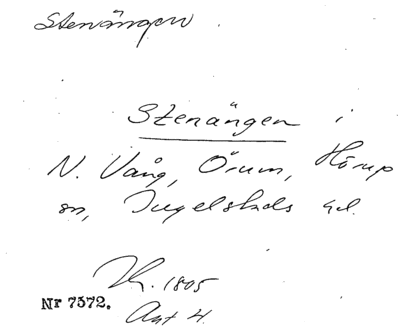 Stenängen
Stenängen i
N. Vång, Örum, Hörup
sn, Ingelstads hd.
Th. 1805
Nr 7572.
Akt 4.